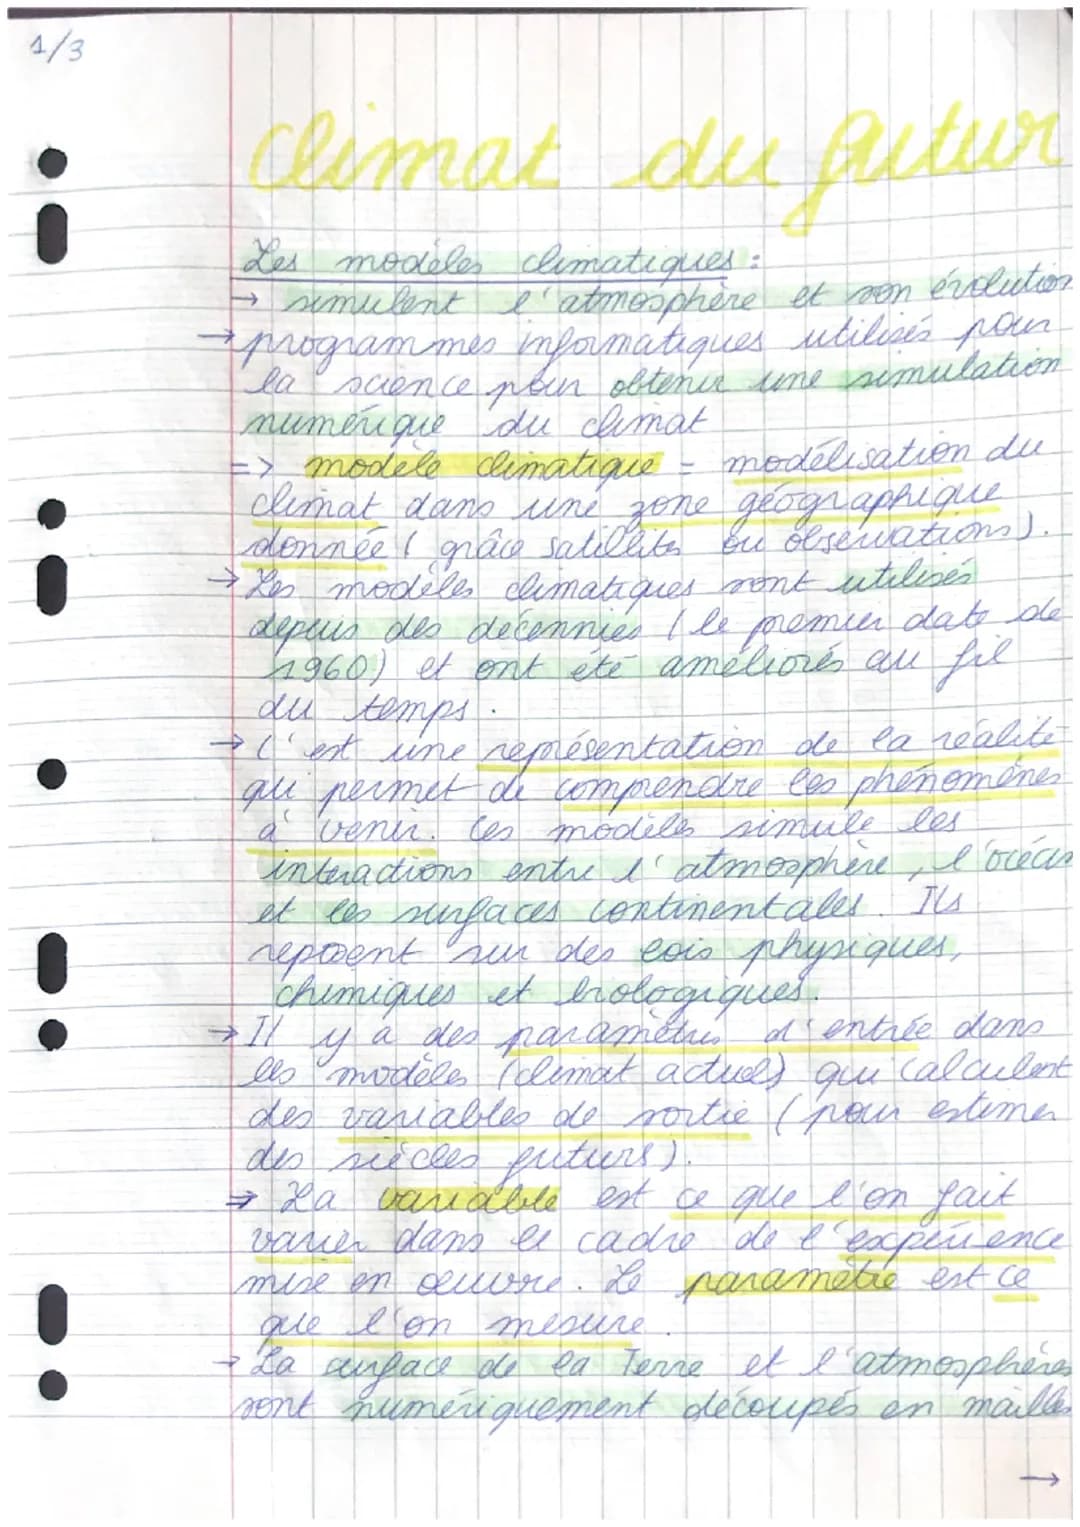 1/3
Climat du futur
Les modèles climatiques :
→ simulent l'atmosphère et son évolution
→ programmes informatiques utilisés pour
la science pour obtenir une simulation
numérique du climat
=> modèle climatique = modélisation du
climat dans une zone géographique
donnée ( grâce satellites ou observations ).
→ Les modèles climatiques sont utilisés
depuis des décennies ( le premier date de
1960) et ont été améliorés au fil
du temps.
→ C'est une représentation de la réalité
qui permet de comprendre les phénomènes
à venir. Ces modèles simule les
interactions entre l'atmosphère, l'océan
et les surfaces continentales. Ils
reposent sur des lois physiques,
chimiques et biologiques.
→ Il y a des paramètres d'entrée dans
les modèles (climat actuel) qui calculent
des variables de sortie ( pour estimer
des siècles futurs).
⇒ La variable est ce que l'on fait
varier dans le cadre de l'expérience
mise en œuvre. Le paramètre est ce
que l'on mesure.
→ La surface de la Terre et l'atmosphères
sont numériquement découpés en mailles
→